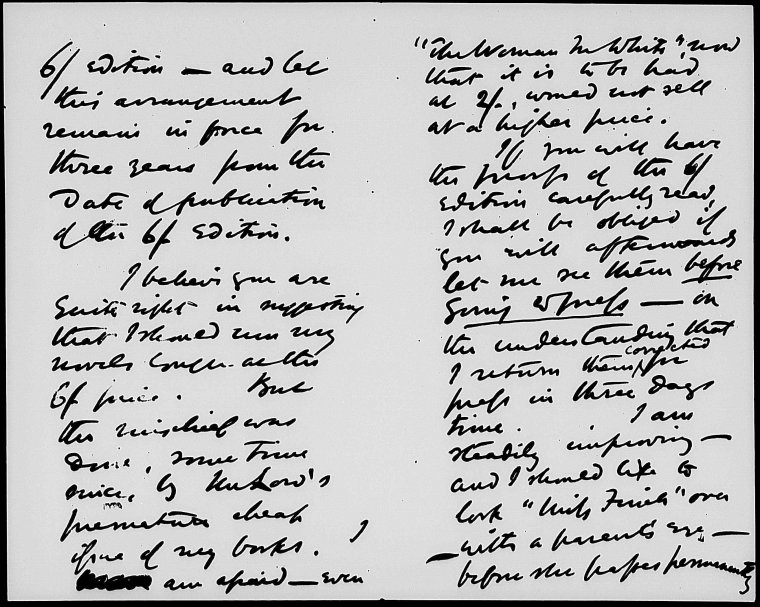 6/ Edition — and let
this arrangement
remain in force for
three years from the
Date of publication
of the 6/ Edition.
I believe you are
quite right in suggesting
that I should run my
novels longer at the
6/ price. But
the mischief was
Done, some time
since, by
premature cheap
issue of my books. I
am afraid — even
"The Woman In White", now
that it is to be had
at 2/., would not sell
at a higher price.
If you will have
the proofs of the 6/
Edition carefully read,
I shall be obliged if
you will afterwards
let me see them before
going to press — on
the understanding that
I return them corrected for
press in three Days
time. I am
steadily improving —
and I should like to
look "Miss Finch" over
— with a parent's eye —
before she passes permanently